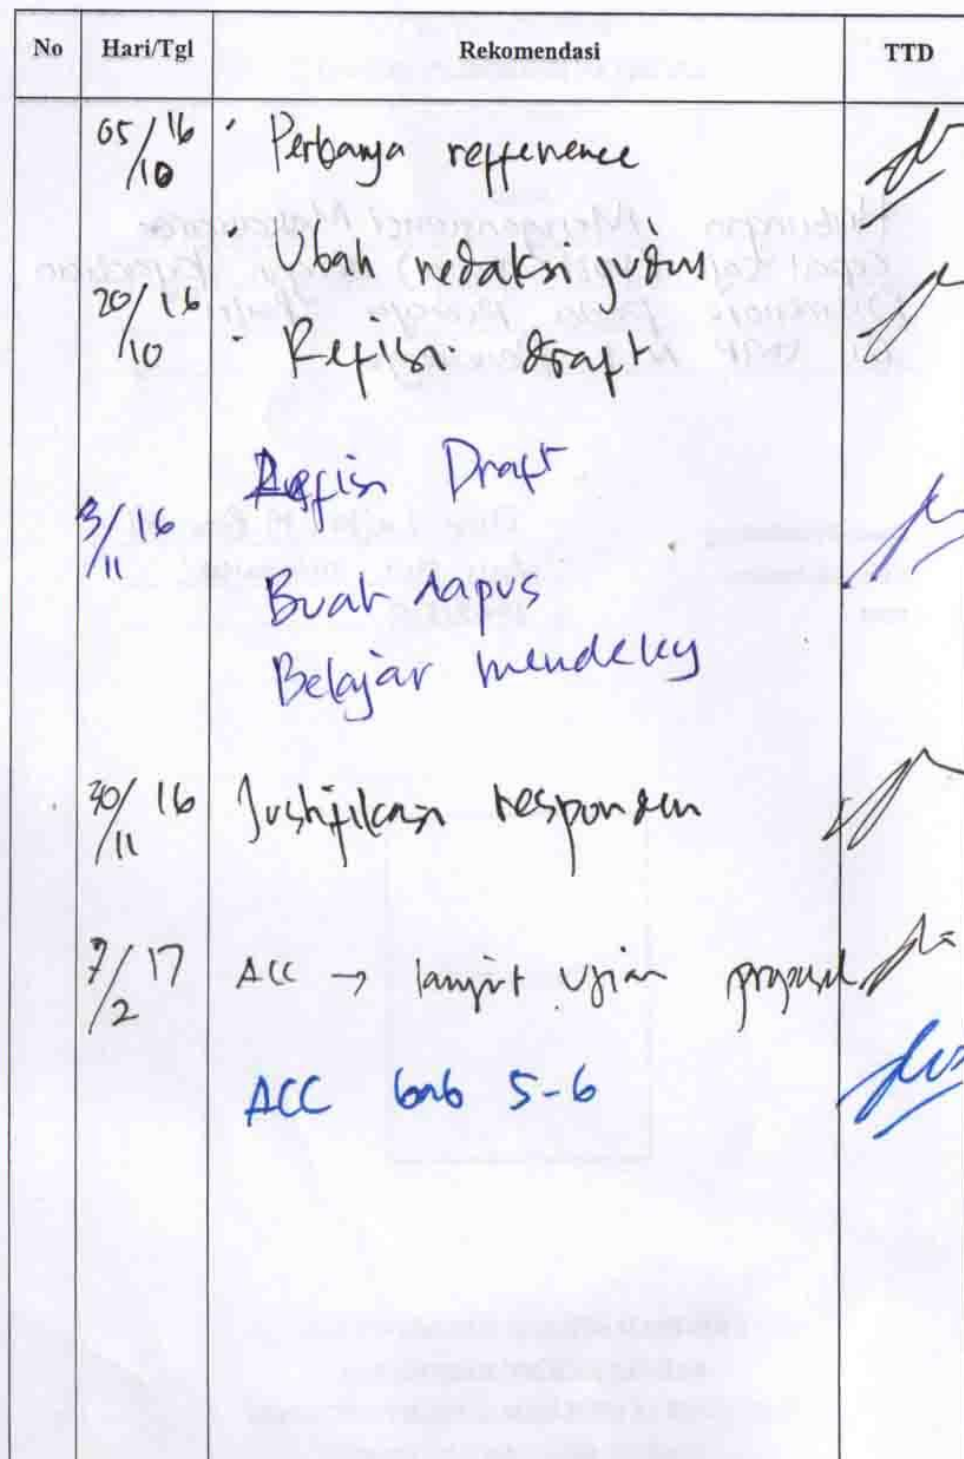 No Hari/Tgl Rekomendasi TTD
05/16 · Perbanya refference
/10
· Ubah redaksi judul
20/16
/10 · Refisi draft
Refisi Draft
3/16
/11
Buat dapus
Belajar mendeley
30/16 Justifikasi responden
/11
7/17 ACC → lanjut ujian proposal
/2
ACC bab 5-6